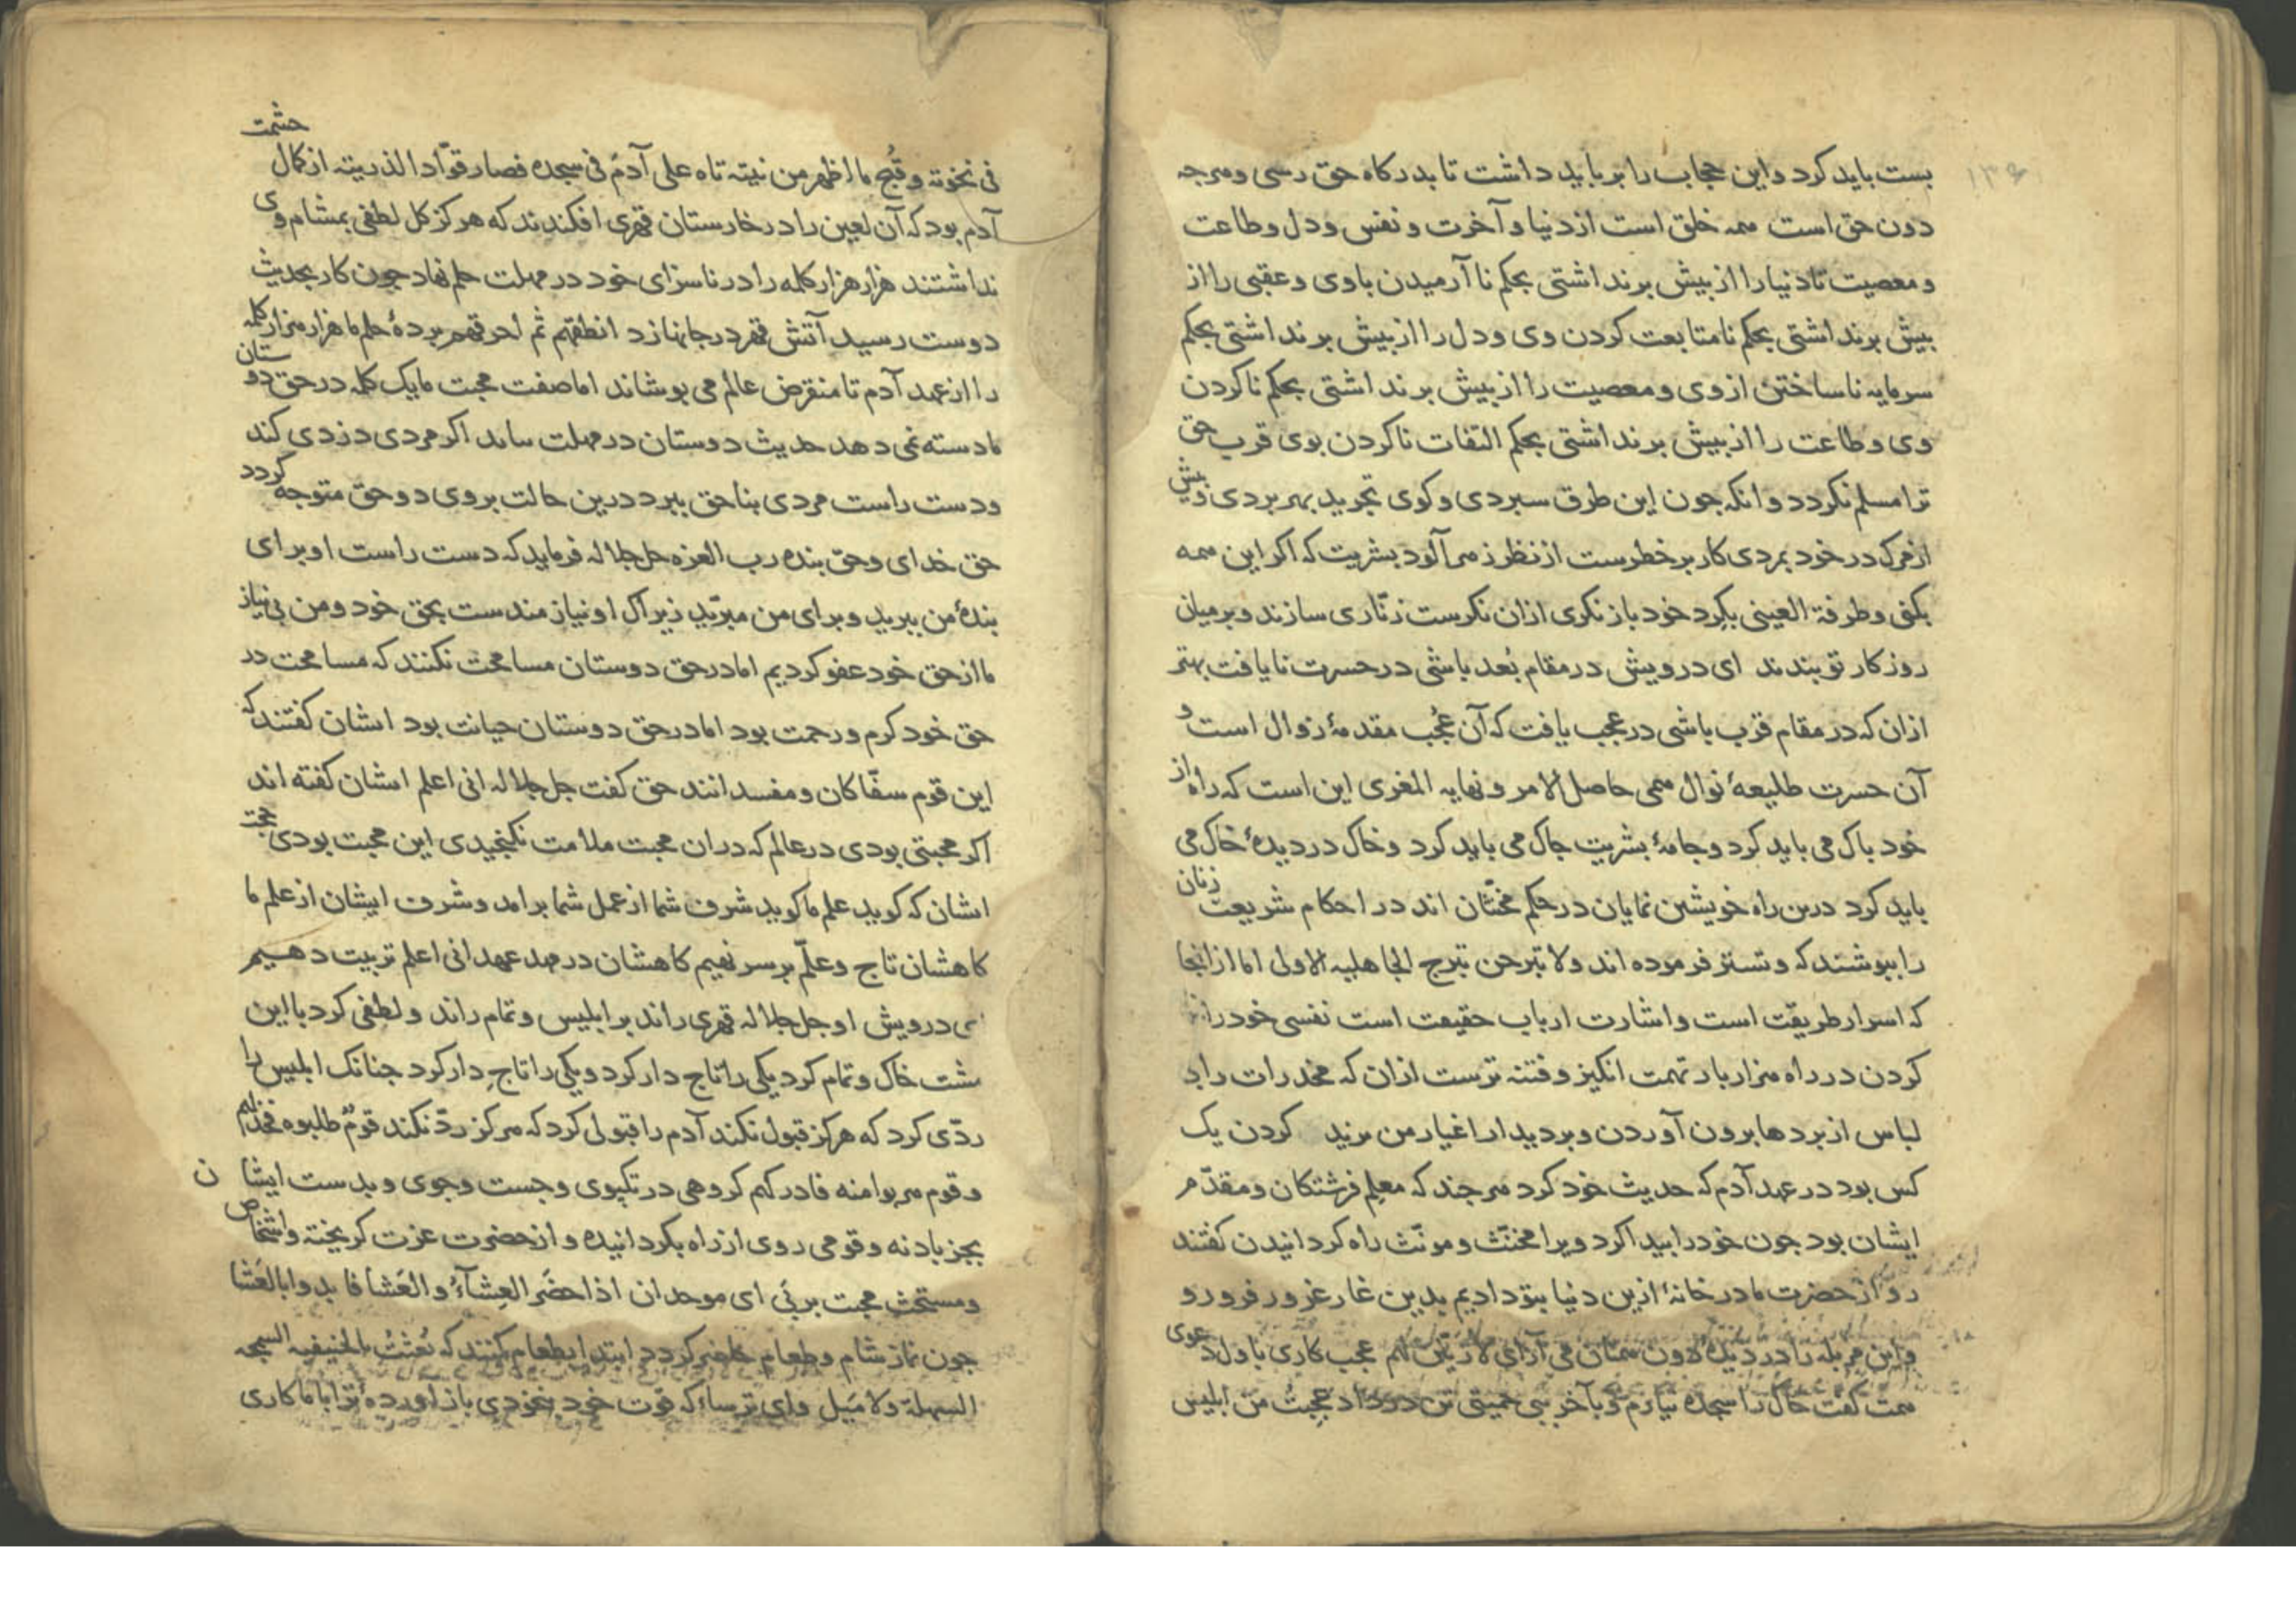 بست باید کرد و این حجاب را بر باید داشت تا بدرکاه حق رسی و هرچه
دون حق است همه خلق است از دنیا و آخرت و نفس و دل و طاعت
و معصیت تا دنیا را از بیش برنداشتی بحکم نا آرمیدن با وی و عقبی را از
بیش برنداشتی بحکم نا متابعت کردن وی و دل را از بیش برنداشتی بحکم
سرمایه نا ساختن از وی و معصیت را از بیش برنداشتی بحکم ناکردن
وی و طاعت را از بیش برنداشتی بحکم التفات ناکردن بوی قرب حق
ترا مسلم نکردد و انکه جون این طرق سبردی و کوی تجرید بهر بردی و بیش
از مرک در خود بمردی کار بر خطرست از نظر زهر آلود بشریت که اکر این همه
بکنی و طرفة العینی بکرد خود باز نکری ازان نکرست زنّاری سازند و بر میان
روزکار تو بندند ای درویش در مقام بُعد باشی در حسرت نایافت بهتر
ازان که در مقام قرب باشی در عجب یافت که آن عُجب مقدمهٔ زوال است و
آن حسرت طلیعهٔ نوال همی حاصل الامر و نهایه المغزی این است که راه از
خود باک می باید کرد و جامهٔ بشریت جاک می باید کرد و خاک در دیدهٔ خاک می
باید کرد درین راه خویشین نمایان در حکم مخنّثان اند در احکام شریعت زنان
را ببوشند که و تستر فرموده اند ولا تبرجن تبرج الجاهلیه الاولی اما ازانجا
که اسرار طریقت است و اشارت ارباب حقیقت است نفسی خود را
کردن در راه هزار بار تهمت انکیز و فتنه ترست ازان که مخدرات را بد
لباس از بردها برون آوردن و بر دیدار اغیار من یزید کردن یک
کس بود در عهد آدم که حدیث خود کرد هر جند که معلم فرشتکان و مقدّم
ایشان بود جون خود را بیدا کرد ویرا مخنّث و مونّث راه کردانیدن کفتند
رو از حضرت ما در خانهٔ ازین دنیا بتو دادیم بدین غار غرور فرو رو
و این مزبله را در دیدهٔ می آرای لازینن لهم عجب کاری با ول دعوی
همت کفت خاک را سجده نیارم و بآخر ببی حمیتی تن در داد عجبتُ من ابلیس
فی نخوته وقُبح ما اظهر من نیّته تاه علی آدمَ فی سجدة فصار قوّادا لذریته از کمال حشمت
آدم بود که آن لعین را در خارستان قهری افکندند که هرکز کل لطفی بمشام وی
نداشتند هزار هزار کلمه را در ناسزای خود در مهلت حلم نهاد جون کار بحدیث
دوست رسید آتش قهر در جانها زد انطقهم ثم احرقهم بردهٔ حلم ما هزار هزار کلمه
را از عهد آدم تا منقرض عالم می بوشاند اما صفت محبت ما یک کلمه در حق دوستان
ما دسته نمی دهد حدیث دوستان در مهلت ساند اکر مردی دزدی کند
و دست راست مردی بناحق ببرد درین حالت بر وی دو حق متوجه کردد
حق خدای و حق بنده رب العزه جل جلاله فرماید که دست راست او برای
بندهٔ من ببرید و برای من مبرّید زیراک او نیازمندست بحق خود و من بی نیاز
ما از حق خود عفو کردیم اما در حق دوستان مسامحت نکنند که مسامحت در
حق خود کرم و رحمت بود اما در حق دوستان خیانت بود ایشان کفتند که
این قوم سفّاکان و مفسدانند حق کفت جل جلاله انی اعلم ایشان کفته اند
اکر محبتی بودی در عالم که دران محبت ملامت نکنجیدی این محبت بودی
ایشان که کوید علم ما کوید شرف شما از عمل شما برآمد و شرف ایشان از علم ما
کاهشان تاج وعلّم بر سر نهیم کاهشان در مهد عهد انی اعلم تربیت دهیم
ی درویش او جل جلاله قهری راند بر ابلیس و تمام راند و لطفی کرد با این
مشت خاک و تمام کرد یکی را تاج دار کرد و یکی را تاج دار کرد جنانک ابلیس را
ردّی کرد که هرکز قبول نکند آدم را قبولی کرد که هرکز ردّ نکند قومٌ طلبوه فخذلهم
و قوم هربوا منه فادرکهم کروهی در تکبوی و جست و جوی و بدست ایشان
بجز باد نه و قومی روی از راه بکردانیده و از حضرت عزت کریخته و اشخاص
ومستحث محبت بر بی ای موحدان اذا حضَر العِشآءُ والعَشا فابدوا بالعَشا
جون نماز شام و طعام حاضر کردد ابتدا بطعام کنند که بُعثتُ بالحنیفیه السمحه
السهلة ولا مَیل وای ترساء که قوت خود بخودی باز آورده ترا با ما کاری